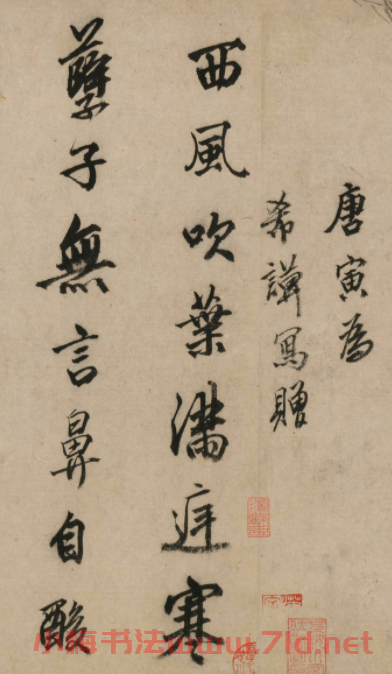 唐寅為
希謨寫贈
西風吹葉滿庭寒
孽子無言鼻自酸
小梅书法www.7ld.net